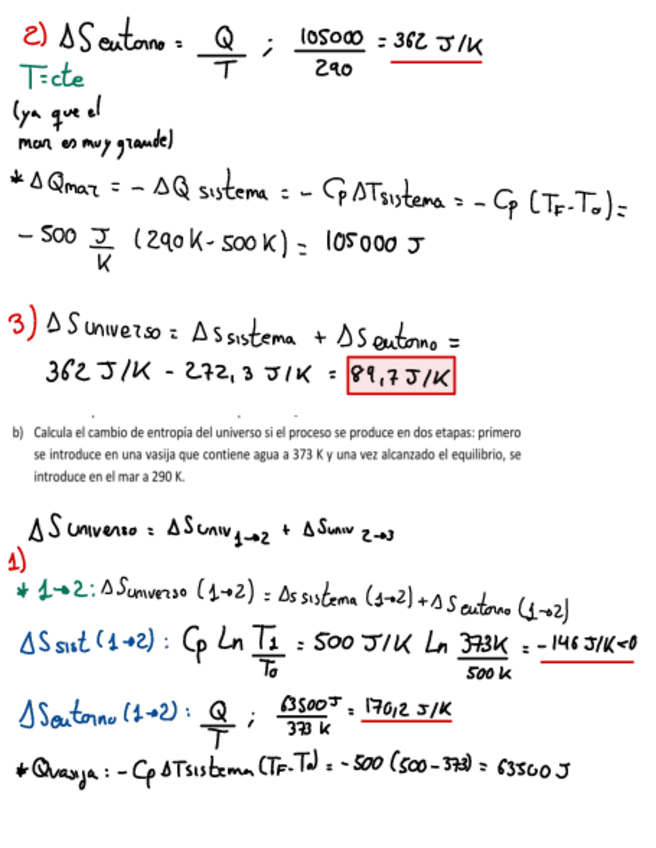 2) ΔS entorno = Q/T ; 105000/290 = 362 J/K
T=cte
(ya que el
mar es muy grande)
* ΔQmar = - ΔQ sistema = - Cp ΔTsistema = - Cp (TF-To) =
- 500 J/K (290K - 500K) = 105000 J
3) ΔS universo = ΔS sistema + ΔS entorno =
362 J/K - 272,3 J/K = 89,7 J/K
b) Calcula el cambio de entropía del universo si el proceso se produce en dos etapas: primero
se introduce en una vasija que contiene agua a 373 K y una vez alcanzado el equilibrio, se
introduce en el mar a 290 K.
ΔS universo = ΔS univ 1→2 + ΔS univ 2→3
1)
* 1→2: ΔS universo (1→2) = Δs sistema (1→2) + ΔS entorno (1→2)
ΔS sist (1→2) : Cp Ln T1/To = 500 J/K Ln 373K/500K = -146 J/K<0
ΔS entorno (1→2) : Q/T ; 63500J/373 K = 170,2 J/K
* Qvasija : - Cp ΔTsistema (TF-To) = - 500 (500-373) = 63500 J